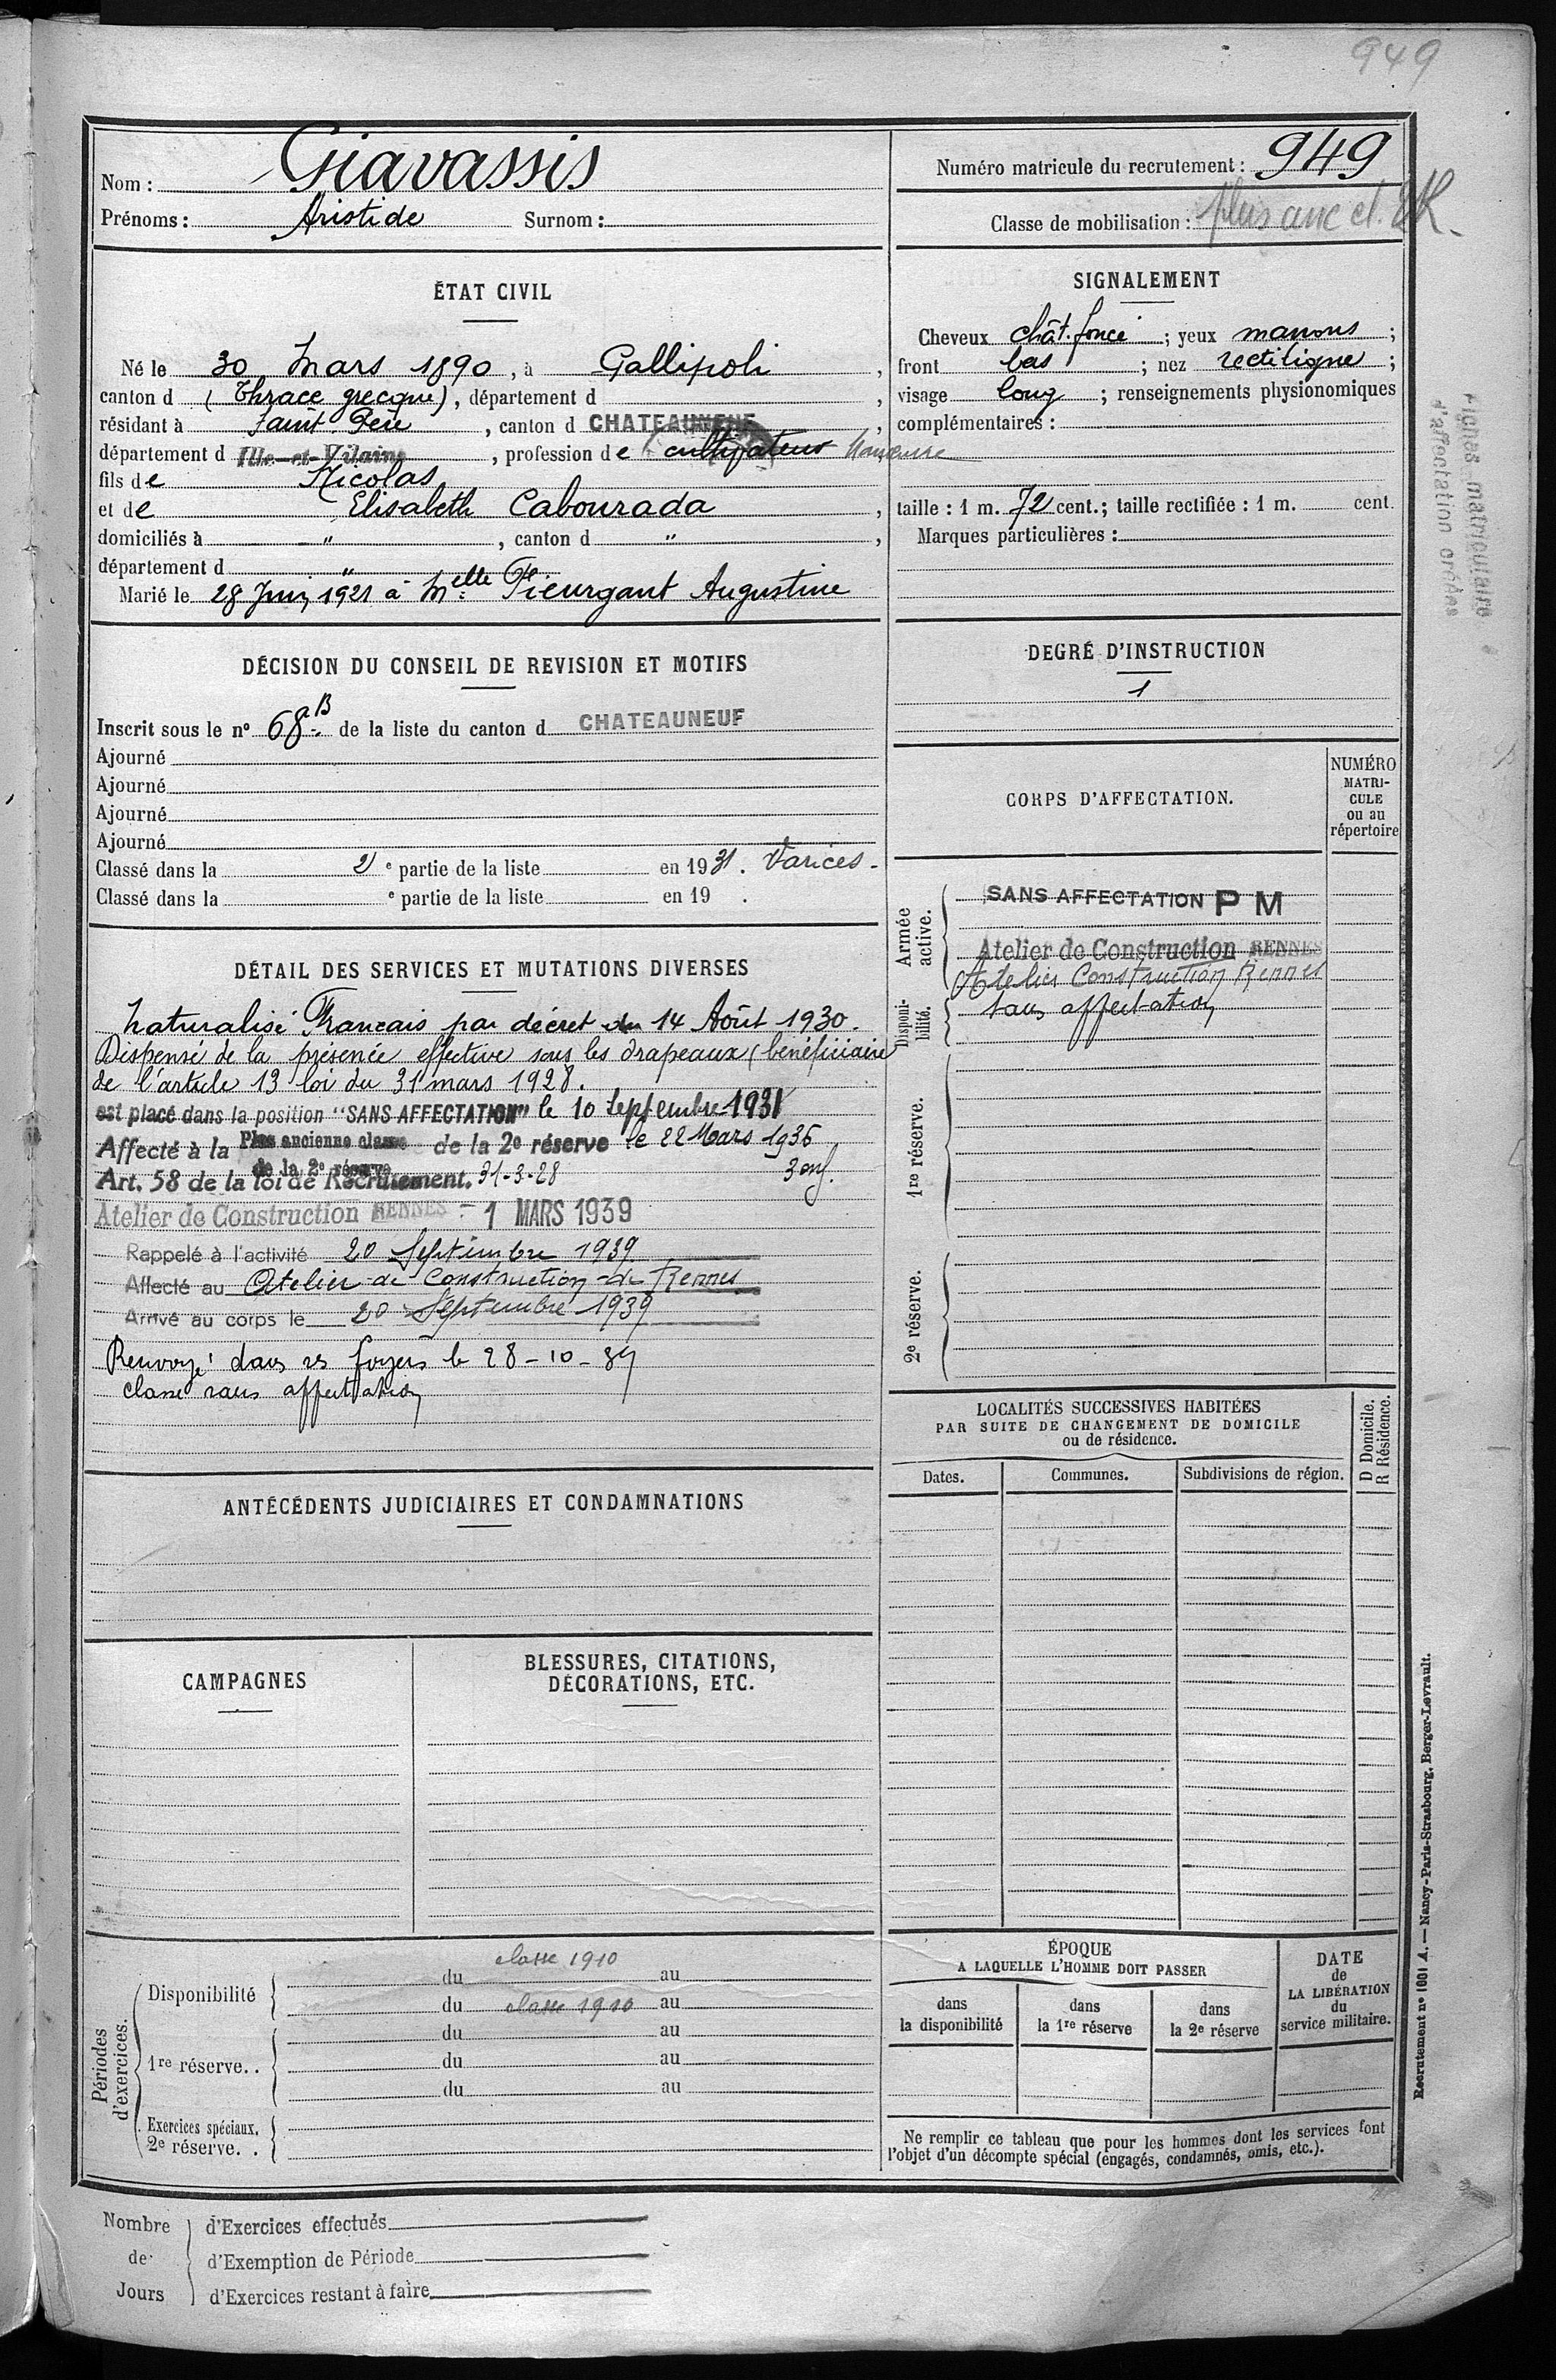 949
Nom : Giavassis
Prénoms : Aristide Surnom :
Numéro matricule du recrutement : 949
Classe de mobilisation : plus anc cl. 2R
ÉTAT CIVIL
Né le 30 Mars 1890, à Gallipoli,
canton d (Thrace grecque), département d ,
résidant à Saint Père, canton d CHATEAUNEUF,
département d Ille-et-Vilaine, profession de cultivateur
fils de Nicolas
et de Elisabeth Cabourada,
domiciliés à ", canton d ",
département d "
Marié le 28 Juin 1921 à Melle Fieurgant Augustine
SIGNALEMENT
Cheveux chât. foncé ; yeux marrons ;
front bas ; nez rectiligne ;
visage long ; renseignements physionomiques
complémentaires :
taille : 1 m. 72 cent.; taille rectifiée : 1 m. cent.
Marques particulières :
Fiches matriculaire
d'affectation créées
DÉCISION DU CONSEIL DE REVISION ET MOTIFS
Inscrit sous le nº 68 a B de la liste du canton d CHATEAUNEUF
Ajourné
Ajourné
Ajourné
Ajourné
Classé dans la 2 e partie de la liste en 1931. Varices -
Classé dans la e partie de la liste en 19 .
DEGRÉ D'INSTRUCTION
1
CORPS D'AFFECTATION.
NUMÉRO
MATRI-
CULE
ou au
répertoire
Armée
active.
SANS AFFECTATION P M
Atelier de Construction RENNES
Atelier Construction Rennes
Disponi-
bilité.
sans affectation
1re réserve.
2e réserve.
DÉTAIL DES SERVICES ET MUTATIONS DIVERSES
Naturalisé Francais par décret du 14 Août 1930.
Dispensé de la présence effective sous les drapeaux (bénéficiaire
de l'article 13 loi du 31 mars 1928.
est placé dans la position "SANS AFFECTATION" le 10 Septembre 1931
Affecté à la Plus ancienne classe de la 2e réserve le 22 Mars 1936
de la 2e réserve
Art. 58 de la loi de Recrutement. 31-3-28 3 enf.
Atelier de Construction RENNES - 1 MARS 1939
Rappelé à l'activité 20 Septembre 1939
Affecté au Atelier de Construction de Rennes
Arrivé au corps le 20 Septembre 1939
Renvoyé dans ses foyers le 28-10-39
classé sans affectation
LOCALITÉS SUCCESSIVES HABITÉES
PAR SUITE DE CHANGEMENT DE DOMICILE
ou de résidence.
Dates. Communes. Subdivisions de région.
D Domicile.
R Résidence.
ANTÉCÉDENTS JUDICIAIRES ET CONDAMNATIONS
CAMPAGNES
BLESSURES, CITATIONS,
DÉCORATIONS, ETC.
Périodes
d'exercices.
classe 1910
Disponibilité du au
du classe 1910 au
1re réserve.. du au
du au
du au
Exercices spéciaux.
2e réserve. .
ÉPOQUE
A LAQUELLE L'HOMME DOIT PASSER
dans
la disponibilité
dans
la 1re réserve
dans
la 2e réserve
DATE
de
LA LIBÉRATION
du
service militaire.
Ne remplir ce tableau que pour les hommes dont les services font
l'objet d'un décompte spécial (engagés, condamnés, omis, etc.).
Recrutement nº 1601 A. — Nancy-Paris-Strasbourg, Berger-Levrault.
Nombre
de
Jours
d'Exercices effectués
d'Exemption de Période
d'Exercices restant à faire